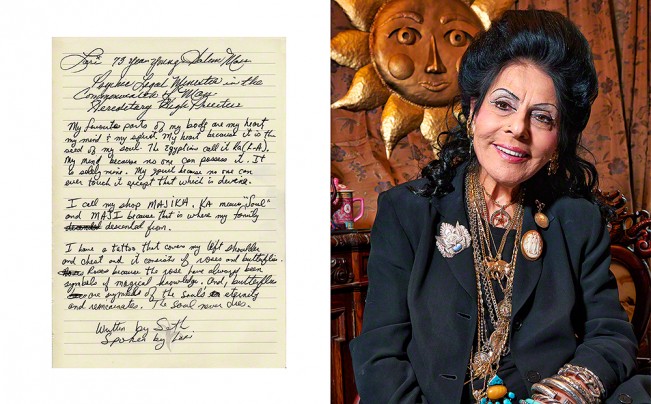 Lori 73 year young Salem Mass
Psychic Legal Minester in the
Commonwealth of Mass
Hereditary High Preistess
My favorites parts of my body are my heart
my mind + my spirit. My heart because it is the
seed of my soul. The Egyptians call it Ka (E-A).
My mind because no one can possess it. It
is solely mine. My spirit because no one can
ever touch it except that which is devine.
I call my shop MAJIKA. KA means "Soul"
and MAJI because that is where my family
descended from.
I have a tattoo that covers my left shoulder
and chest and it consists of roses and butterflies.
Roses because the rose have always been
symbols of magical knowledge. And, butterflies
are symbols of the souls eternity
and reincarnates. The soul never dies.
Written by Seth
Spoken by Lori